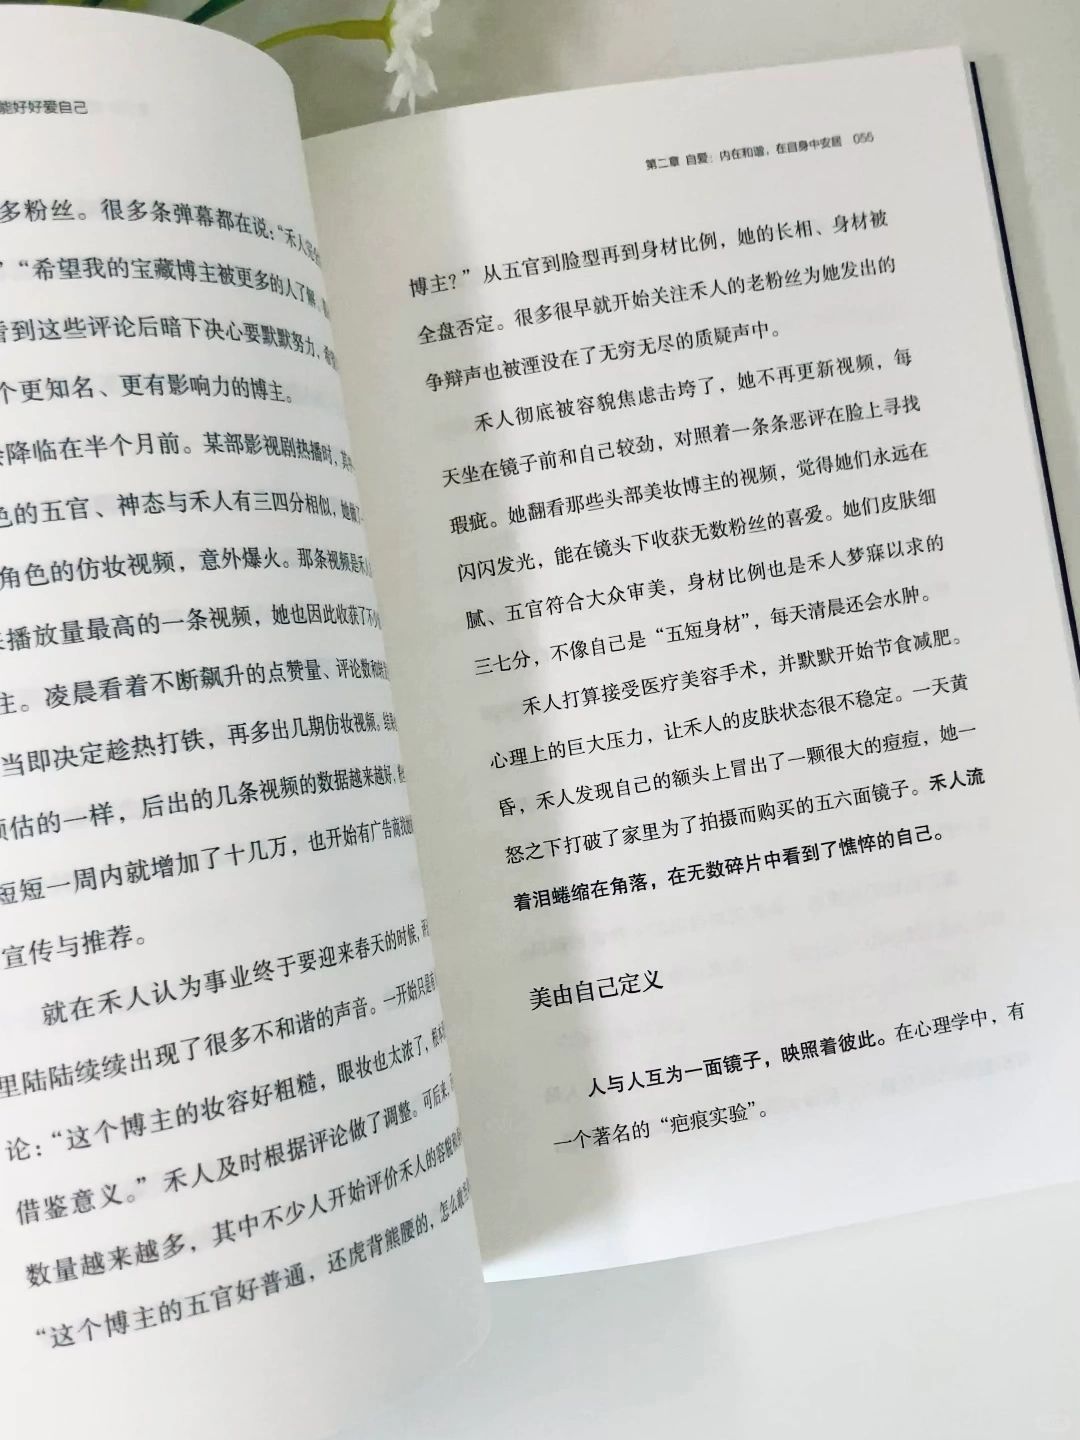 能好好爱自己
多粉丝。很多条弹幕都在说：“禾人
”“希望我的宝藏博主被更多的人了解，
看到这些评论后暗下决心要默默努力，
个更知名、更有影响力的博主。
降临在半个月前。某部影视剧热播时，其
色的五官、神态与禾人有三四分相似，她
角色的仿妆视频，意外爆火。那条视频是禾人
播放量最高的一条视频，她也因此收获了不少
主。凌晨看着不断飙升的点赞量、评论数和
当即决定趁热打铁，再多出几期仿妆视频。结果
预估的一样，后出的几条视频的数据越来越好，
短短一周内就增加了十几万，也开始有广告商找
宣传与推荐。
就在禾人认为事业终于要迎来春天的时候，
里陆陆续续出现了很多不和谐的声音。一开始只是
论：“这个博主的妆容好粗糙，眼妆也太浓了，根本
借鉴意义。”禾人及时根据评论做了调整。可后来，
数量越来越多，其中不少人开始评价禾人的容貌和
“这个博主的五官好普通，还虎背熊腰的，怎么敢当
第二章 自爱：内在和谐，在自身中安居 055
博主？”从五官到脸型再到身材比例，她的长相、身材被
全盘否定。很多很早就开始关注禾人的老粉丝为她发出的
争辩声也被湮没在了无穷无尽的质疑声中。
禾人彻底被容貌焦虑击垮了，她不再更新视频，每
天坐在镜子前和自己较劲，对照着一条条恶评在脸上寻找
瑕疵。她翻看那些头部美妆博主的视频，觉得她们永远在
闪闪发光，能在镜头下收获无数粉丝的喜爱。她们皮肤细
腻、五官符合大众审美，身材比例也是禾人梦寐以求的
三七分，不像自己是“五短身材”，每天清晨还会水肿。
禾人打算接受医疗美容手术，并默默开始节食减肥。
心理上的巨大压力，让禾人的皮肤状态很不稳定。一天黄
昏，禾人发现自己的额头上冒出了一颗很大的痘痘，她一
怒之下打破了家里为了拍摄而购买的五六面镜子。禾人流
着泪蜷缩在角落，在无数碎片中看到了憔悴的自己。
美由自己定义
人与人互为一面镜子，映照着彼此。在心理学中，有
一个著名的“疤痕实验”。